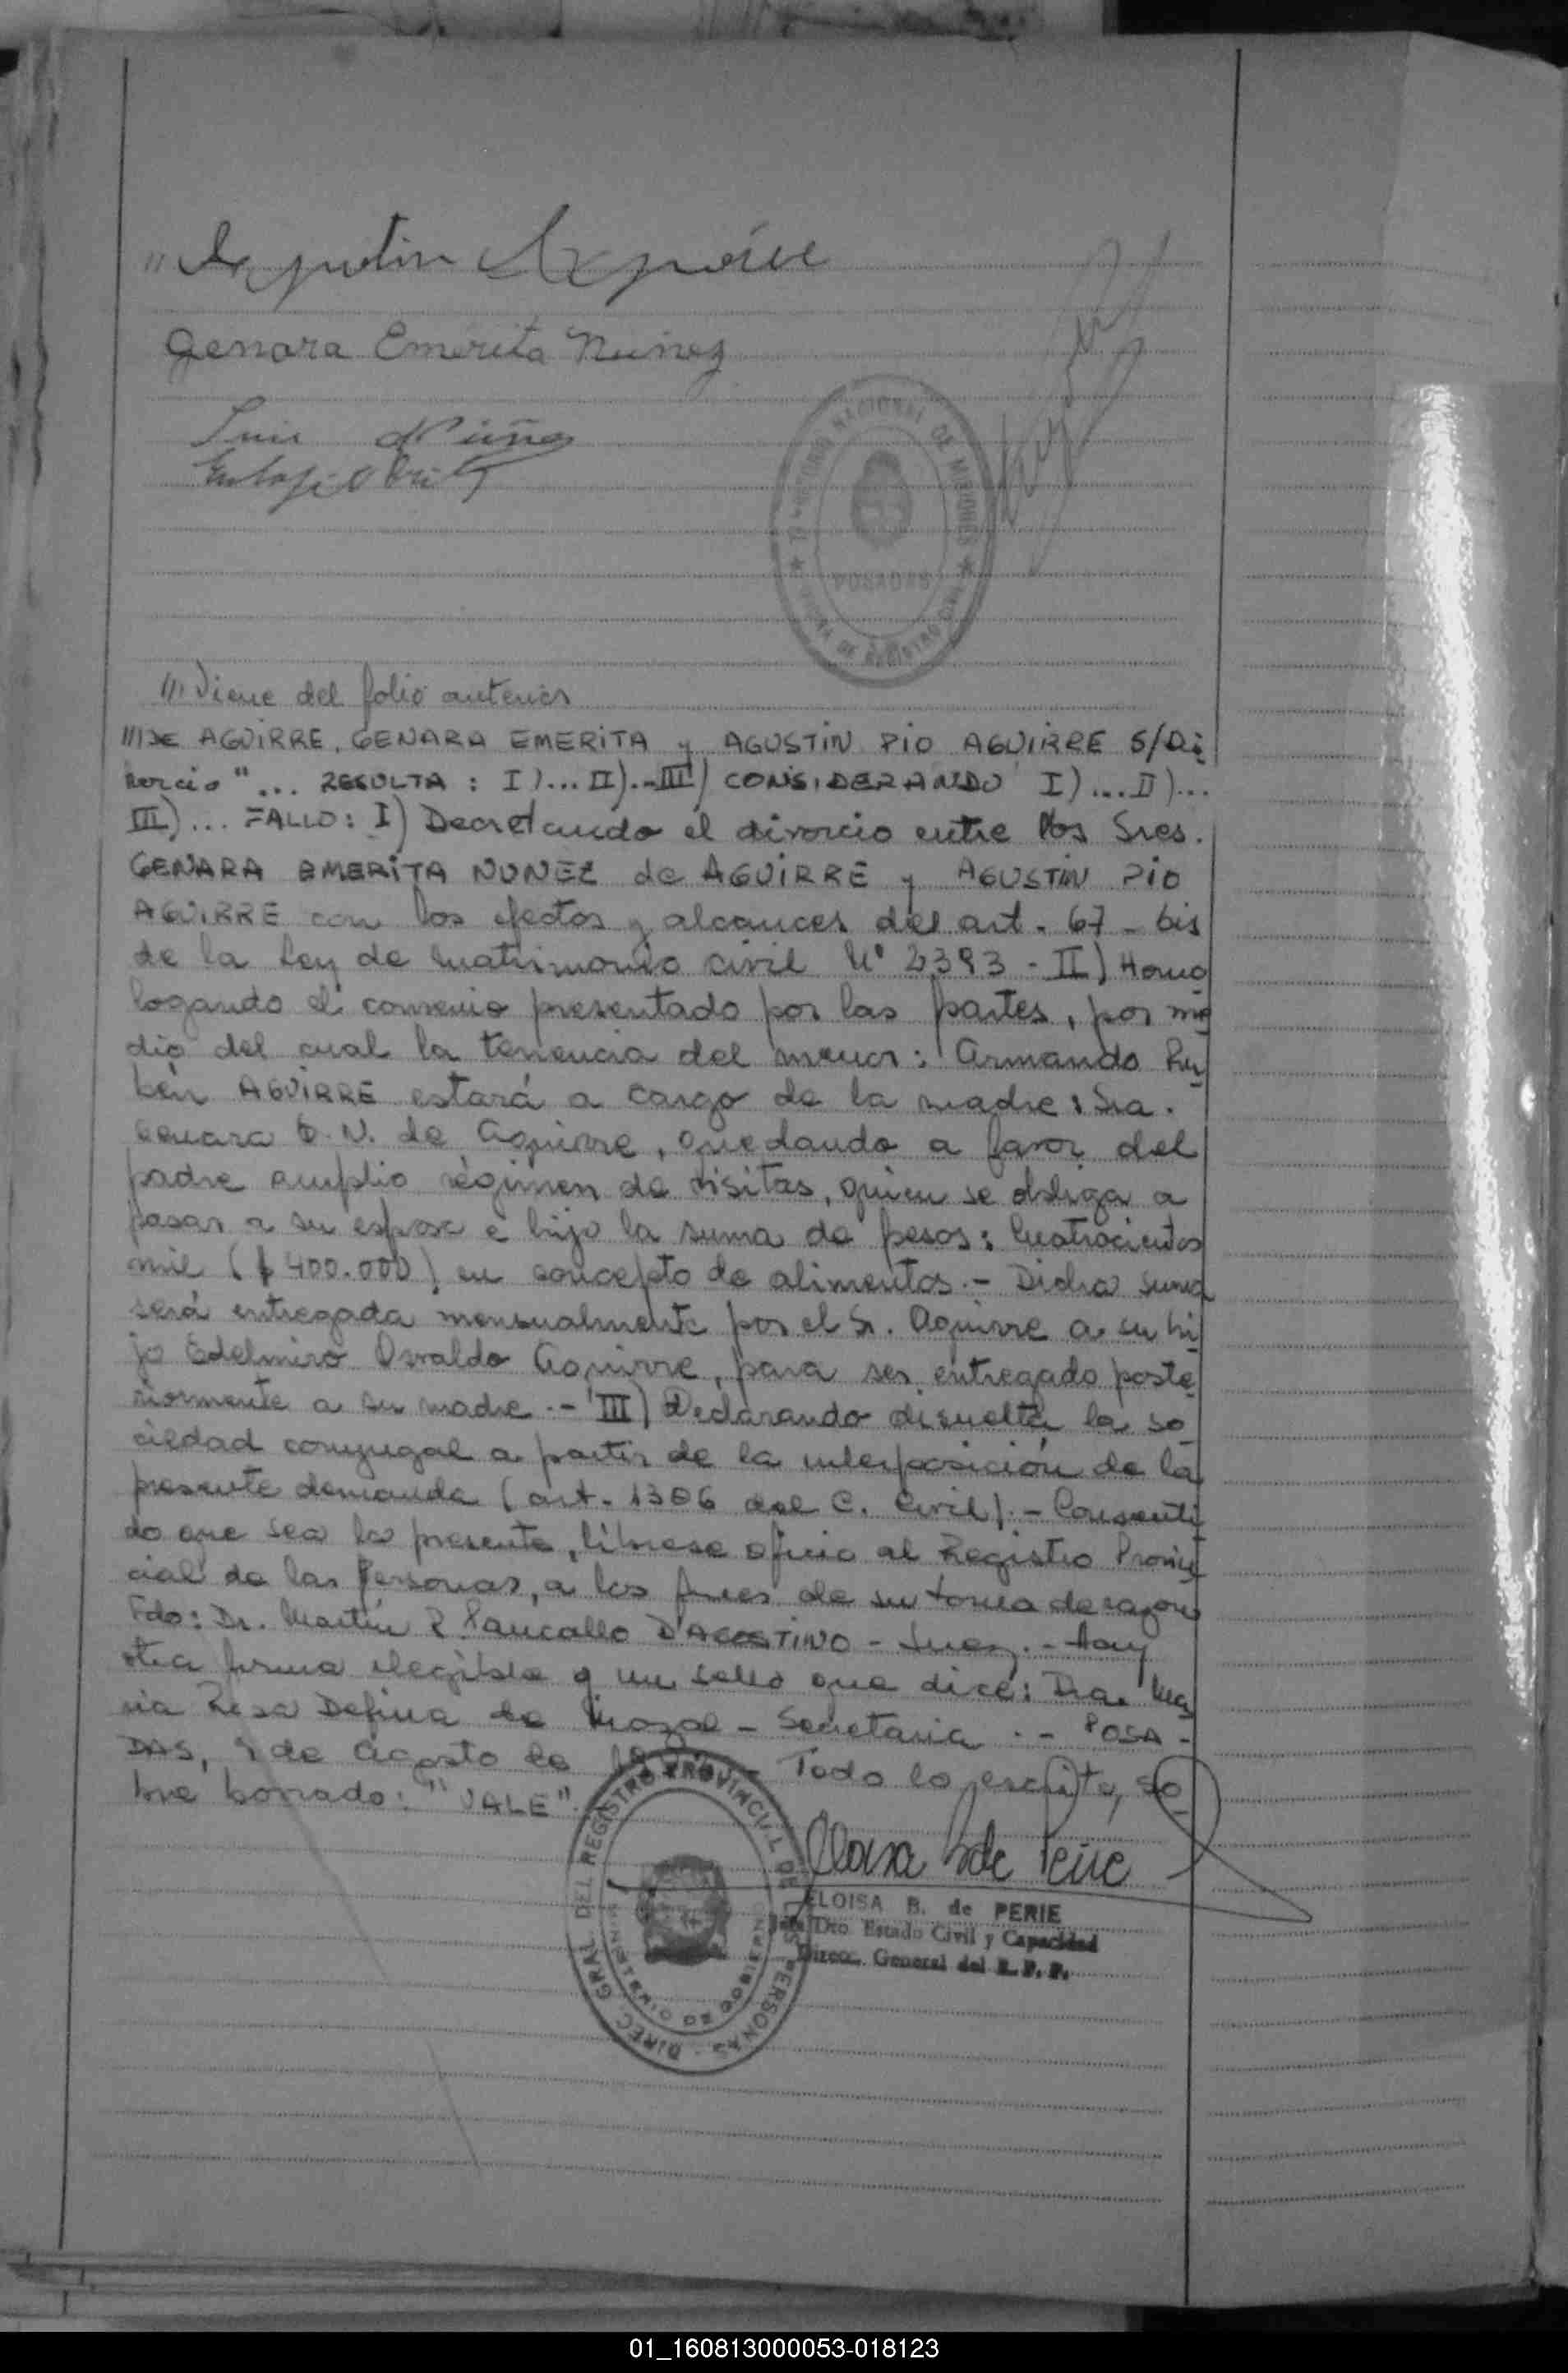 " Agustin Aguirre
Genara Emerita Nuñez
Luis Nuñez
TERRITORIO NACIONAL DE MISIONES
POSADAS
OFICINA DE REGISTRO CIVIL
/// Viene del folio anterior
///DE AGUIRRE, GENARA EMERITA y AGUSTIN PIO AGUIRRE S/Di
vorcio"... RESULTA: I)...II)..-III) CONSIDERANDO I)...II)...
III)... FALLO: I) Decretando el divorcio entre los Sres.
GENARA EMERITA NUNEZ de AGUIRRE y AGUSTIN PIO
AGUIRRE con los efectos y alcances del art. 67 - bis
de la Ley de matrimonio civil Nº 2393 - II) Homo
logando el convenio presentado por las partes, por me
dio del cual la tenencia del menor: Armando Ru
bén AGUIRRE estará a cargo de la madre: Sra.
Genara E. N. de Aguirre, quedando a favor del
padre amplio régimen de visitas, quien se obliga a
pasar a su esposa e hijo la suma de pesos: Cuatrocientos
mil ($ 400.000) en concepto de alimentos.- Dicha suma
será entregada mensualmente por el Sr. Aguirre a su hi
jo Edelmiro Osvaldo Aguirre, para ser entregado poste
riormente a su madre.- III) Declarando disuelta la so
ciedad conyugal a partir de la interposición de la
presente demanda (art. 1306 del C. Civil).- Consenti
do que sea la presente, líbrese oficio al Registro Provin
cial de las Personas, a los fines de su toma de razón
Fdo: Dr. Martín R D'AGOSTINO - Juez.- Hay
otra firma ilegible y un sello que dice: Dra. Ma
ria Rosa Defina de - Secretaria .- POSA -
DAS, 9 de Agosto de Todo lo escrito, so
bre borrado: "VALE".
DIREC. GRAL DEL REGISTRO PROVINCIAL DE LAS PERSONAS
MINISTERIO DE GOBIERNO
ELOISA B. de PERIE
Jefe Dto Estado Civil y Capacidad
Direcc. General del R. P. P.
01_160813000053-018123